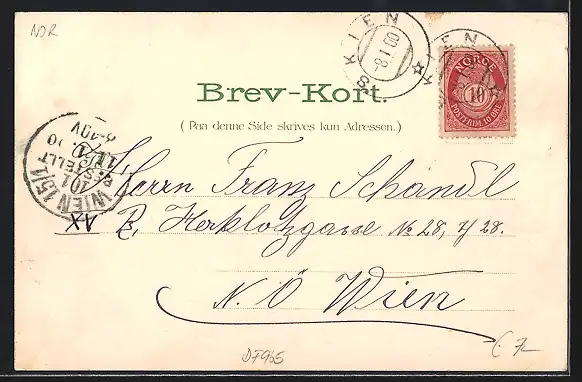 NOR
SKIEN
8-1 00
SKIEN
NORGE
10
POSTFRIM. 10 ØRE
Brev-Kort.
(Paa denne Side skrives kun Adressen.)
WIEN 15/1
101
BESTELLT
8-10V
Herrn Franz Schandl
XV Herklotzgasse № 28, 28.
N. Ö Wien
DF965